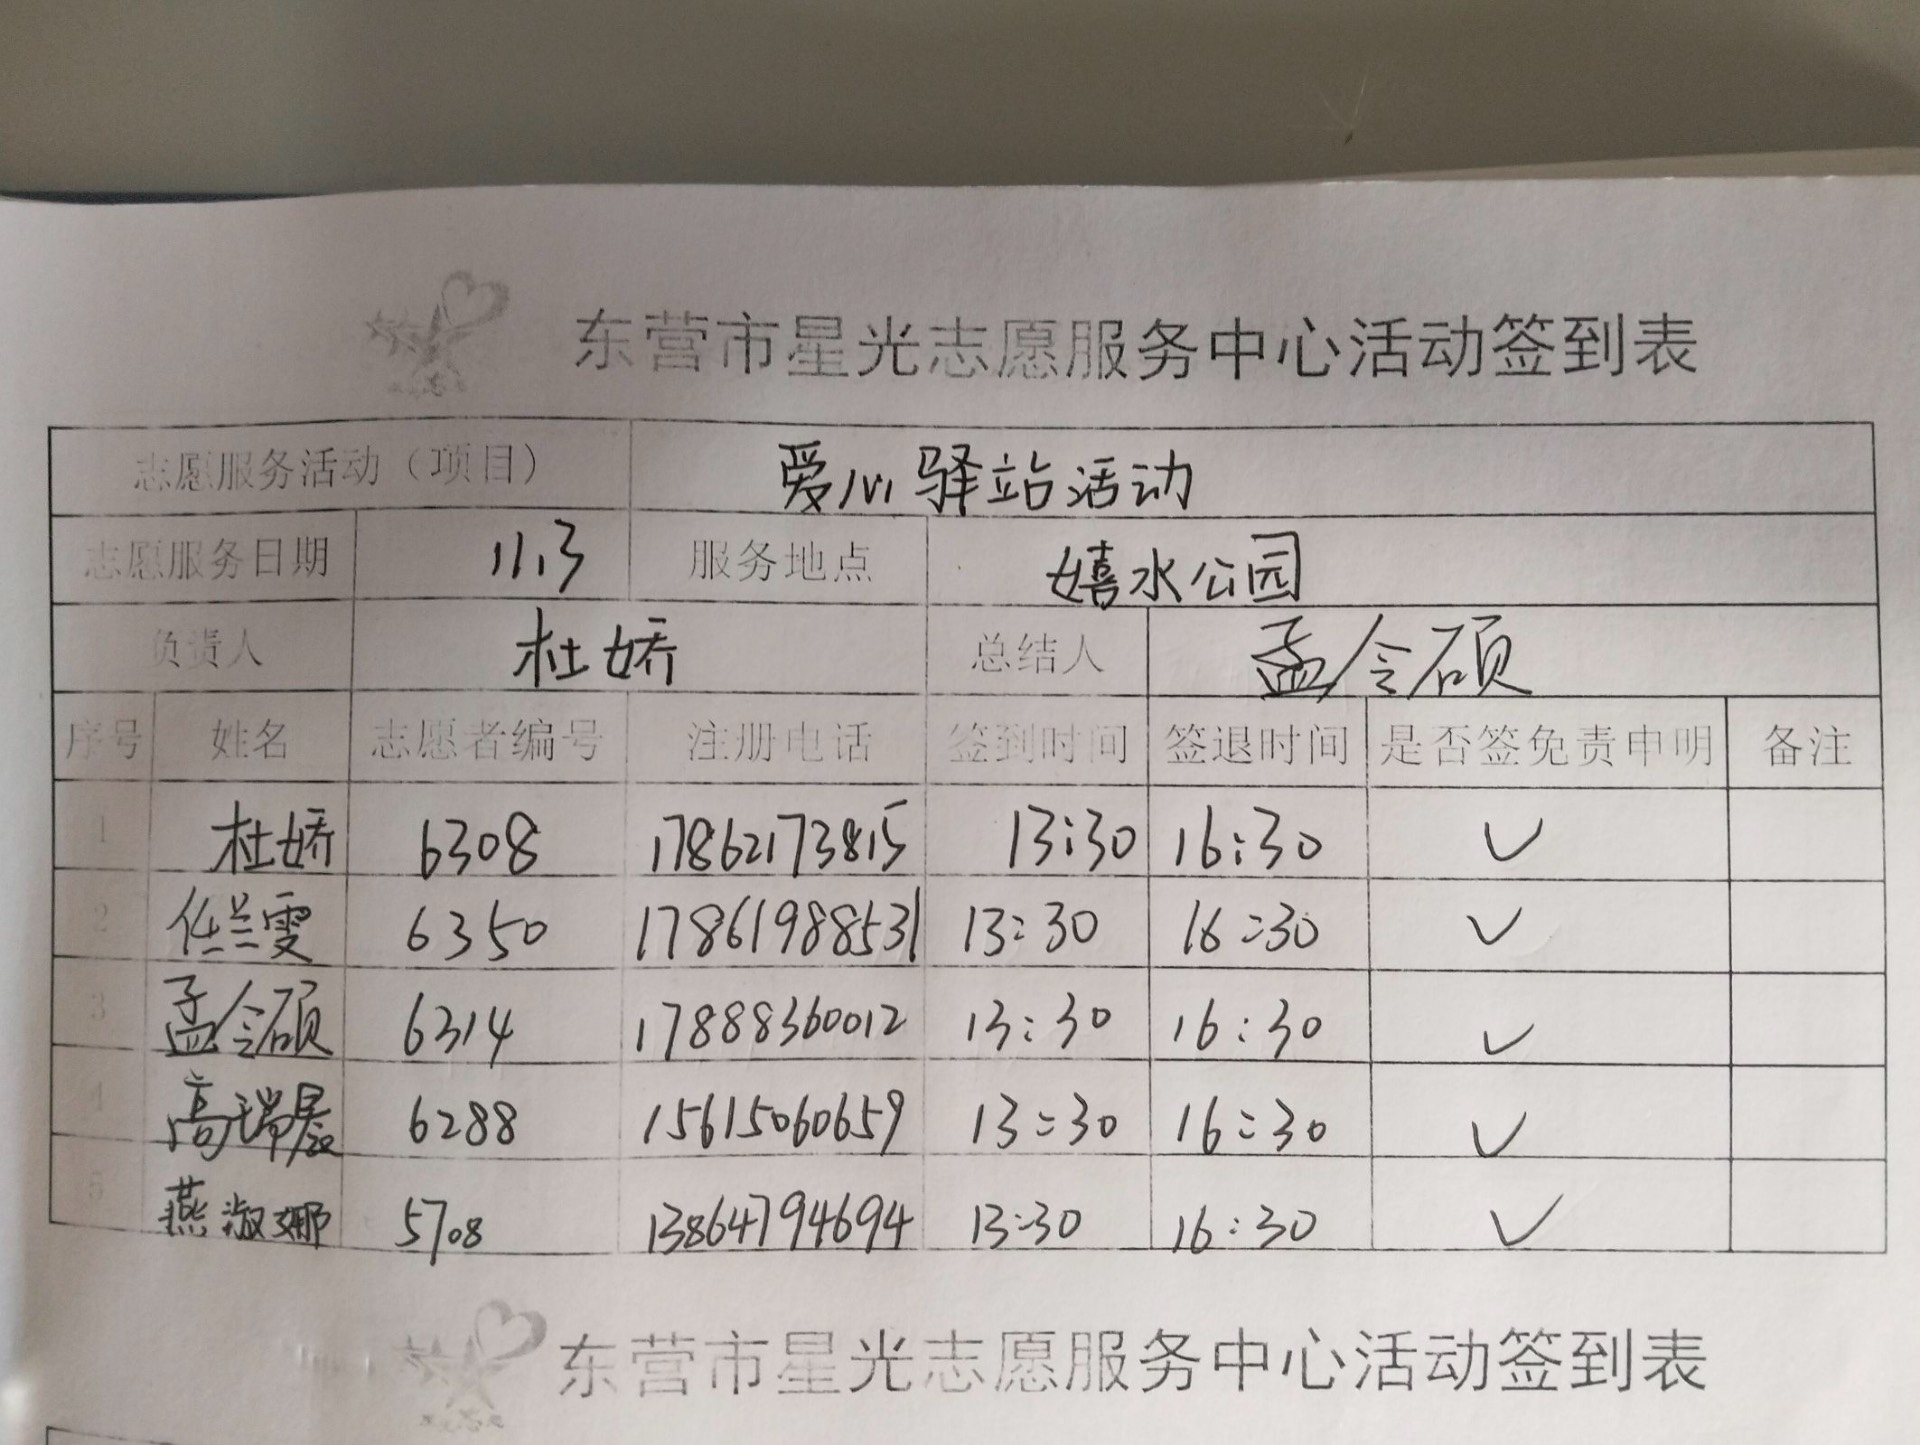 东营市星光志愿服务中心活动签到表
志愿服务活动（项目） 爱心驿站活动
志愿服务日期 11.3 服务地点 嬉水公园
负责人 杜娇 总结人 孟令硕
序号 姓名 志愿者编号 注册电话 签到时间 签退时间 是否签免责申明 备注
1 杜娇 6308 17862173815 13:30 16:30 ✓
2 任兰雯 6350 17861988531 13:30 16:30 ✓
3 孟令硕 6314 17888360012 13:30 16:30 ✓
4 高瑞晨 6288 15615060659 13:30 16:30 ✓
5 燕淑娜 5708 13864794694 13:30 16:30 ✓
东营市星光志愿服务中心活动签到表